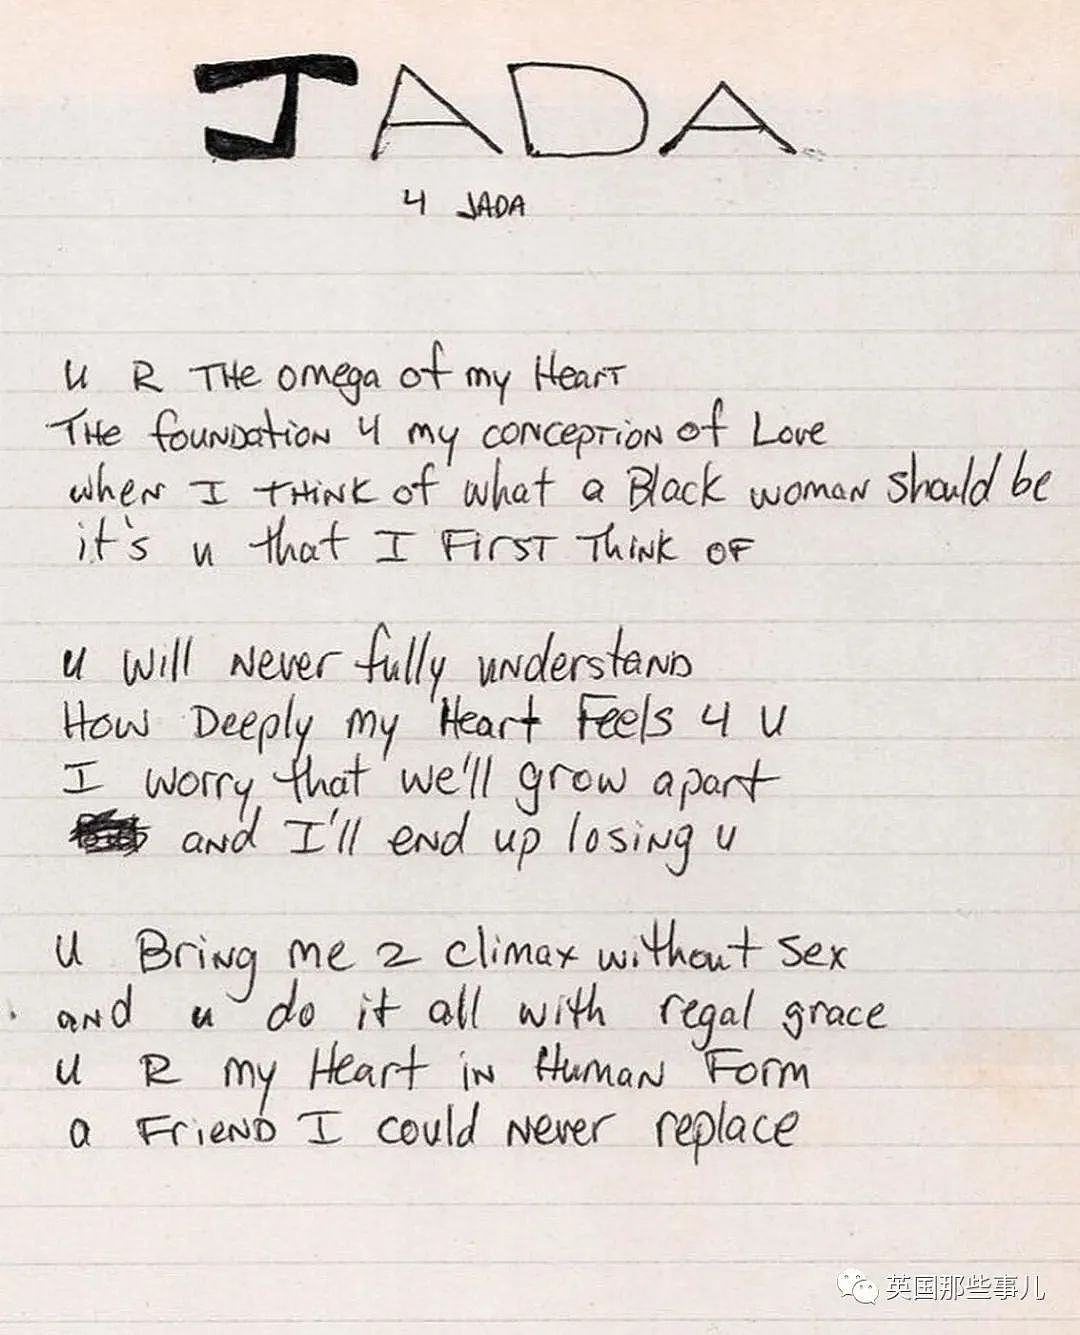 JADA
4 JADA
u R THe omega of my Heart
THe foundation 4 my conception of Love
when I THINK of what a Black woman should be
it's u that I First Think of
u will never fully understand
How Deeply my Heart Feels 4 u
I worry that we'll grow apart
and I'll end up losing u
u Bring me 2 climax without sex
and u do it all with regal grace
u R my Heart in Human Form
a Friend I could never replace
英国那些事儿